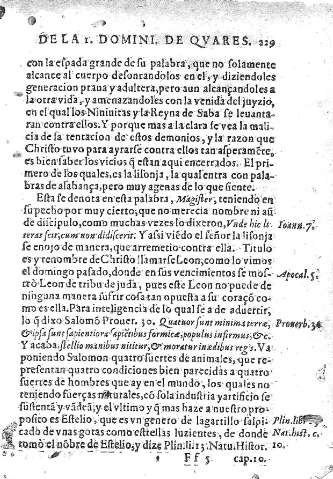 DE LA 1. DOMINI. DE QVARES. 229
con la espada grande de su palabra, que no solamente
alcance al cuerpo desonrandolos en el, y diziendoles
generacion praua y adultera, pero aun alcançandoles a
la otra vida, y amenazandoles con la venida del juyzio,
en el qual los Niniuitas y la Reyna de Saba se leuanta-
ran contra ellos. Y porque mas a la clara se vea la mali-
cia de la tentacion de estos demonios, y la razon que
Christo tuvo para ayrarse contra ellos tan asperamēte,
es bien saber los vicios q̃ estan aqui encerrados. El pri-
mero de los quales, es la lisonja, la qual entra con pala-
bras de alabāça, pero muy agenas de lo que siente.
Esta se denota en esta palabra, Magister, teniendo en
su pecho por muy cierto, que no merecia nombre ni aũ
de discipulo, como muchas vezes lo dixeron, Vnde hic li-
teras scit, cum non didiscerit. Y assi viēdo el señor la lisonja
Ioann. 7.
se enojo de manera, que arremetio contra ella. Titulo
es y renombre de Christo llamarse Leon, como lo vimos
el domingo passado, donde en sus vencimientos se mos-
Apocal. 5.
trò Leon de tribu de judà, pues este Leon no puede de
ninguna manera sufrir cosa tan opuesta a su coraçõ co-
mo es ella. Para inteligencia de lo qual se a de aduertir,
lo q̃ dixo Salomõ Prouer. 30. Quatuor sunt minima terræ,
Prouerb. 30.
& ipsa sunt sapientiora sapiētibus formicæ, populus infirmus, &c.
Y acaba, stellio manibus nititur, & moratur in ædibus regis. Va
poniendo Salomon quatro suertes de animales, que re-
presentan quatro condiciones bien parecidas a quatro
suertes de hombres que ay en el mundo, los quales no
teniendo fuerças naturales, cõ sola industria y artificio se
sustentā y vadeā; y el vltimo y q̃ mas haze a nuestro pro-
posito es Estelio, que es vn genero de lagartillo salpi-
Plin. li.
cado de vnas gotas como estrellas luzientes, de donde
Nat. hist. c.
tomò el nõbre de Estelio; y dize Plin. li. Natu. Histor.
10.
F f 5 cap. 10.